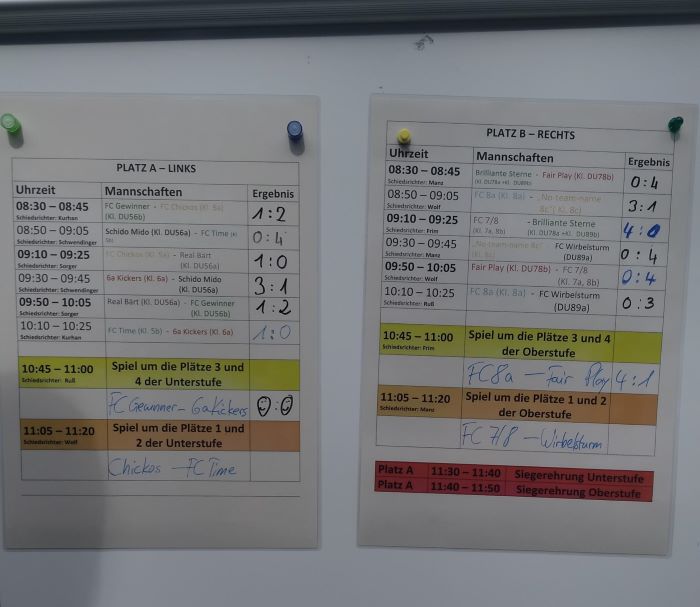 PLATZ A – LINKS
Uhrzeit Mannschaften Ergebnis
08:30 – 08:45 FC Gewinner - FC Chickos (Kl. 5a) 1:2
Schiedsrichter: Kurhan (Kl. DU56b)
08:50 – 09:05 Schido Mido (KL. DU56a) - FC Time (Kl. 5b) 0:4
Schiedsrichter: Schwendinger
09:10 – 09:25 FC Chickos (Kl. 5a) - Real Bärt 1:0
Schiedsrichter: Sorger (KL. DU56a)
09:30 – 09:45 6a Kickers (Kl. 6a) - Schido Mido 3:1
Schiedsrichter: Schwendinger (KL. DU56a)
09:50 – 10:05 Real Bärt (KL. DU56a) - FC Gewinner 1:2
Schiedsrichter: Sorger (Kl. DU56b)
10:10 – 10:25 FC Time (Kl. 5b) - 6a Kickers (Kl. 6a) 1:0
Schiedsrichter: Kurhan
10:45 – 11:00 Spiel um die Plätze 3 und
Schiedsrichter: Ruß 4 der Unterstufe
FC Gewinner – 6a Kickers 0:0
11:05 – 11:20 Spiel um die Plätze 1 und
Schiedsrichter: Wolf 2 der Unterstufe
Chickos – FC Time
PLATZ B – RECHTS
Uhrzeit Mannschaften Ergebnis
08:30 – 08:45 Brilliante Sterne - Fair Play (Kl. DU78b) 0:4
Schiedsrichter: Manz (Kl. DU78a +Kl. DU89b)
08:50 – 09:05 FC 8a (Kl. 8a) - „No team-name 3:1
Schiedsrichter: Wolf 8c“(Kl. 8c)
09:10 – 09:25 FC 7/8 - Brilliante Sterne 4:0
Schiedsrichter: Prim (Kl. 7a, 8b) (Kl. DU78a +Kl. DU89b)
09:30 – 09:45 „No team-name 8c“ FC Wirbelsturm 0:4
Schiedsrichter: Manz (Kl. 8c) (DU89a)
09:50 – 10:05 Fair Play (Kl. DU78b) - FC 7/8 0:4
Schiedsrichter: Wolf (Kl. 7a, 8b)
10:10 – 10:25 FC 8a (Kl. 8a) - FC Wirbelsturm 0:3
Schiedsrichter: Ruß (DU89a)
10:45 – 11:00 Spiel um die Plätze 3 und 4
Schiedsrichter: Prim der Oberstufe
FC 8a – Fair Play 4:1
11:05 – 11:20 Spiel um die Plätze 1 und 2
Schiedsrichter: Manz der Oberstufe
FC 7/8 – Wirbelsturm
Platz A 11:30 – 11:40 Siegerehrung Unterstufe
Platz A 11:40 – 11:50 Siegerehrung Oberstufe